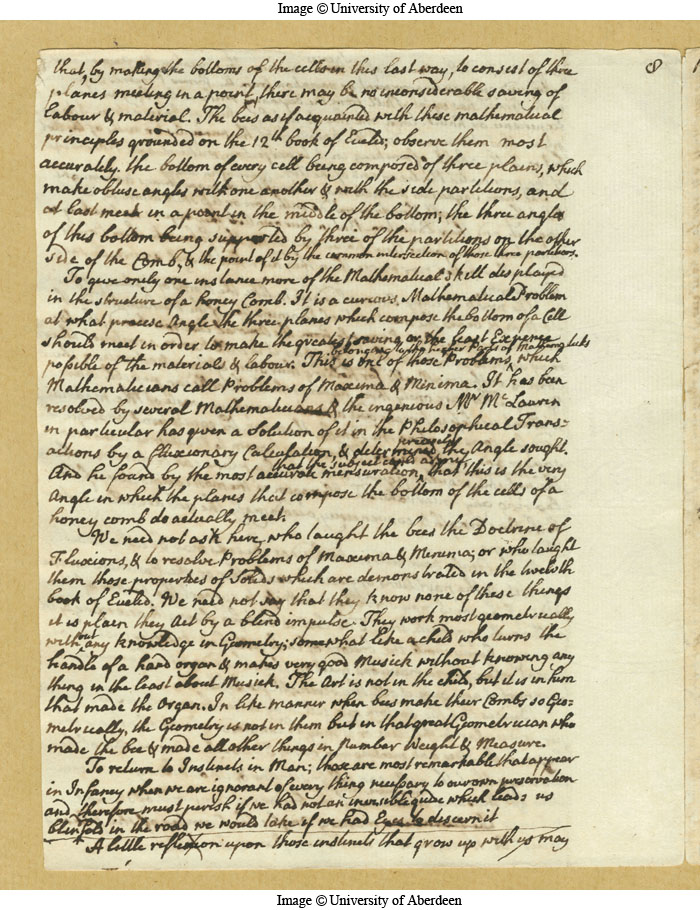 Image © University of Aberdeen
8
that, by making the bottoms of the cells in this last way, to consist of three
planes meeting in a point, there may be no inconsiderable saving of
Labour & material. The bees as if acquainted with these mathematical
principles grounded on the 12th book of Euclid; observe them most
accurately. the bottom of every cell being composed of three plains, which
make obtuse angles with one another & with the side partitions, and
at last meet in a point in the middle of the bottom; the three angles
of this bottom being supported by three of the partitions on the other
side of the Comb, & the point of it by the common intersection of those three partitions.
To give only one instance more of the Mathematical skill displayed
in the structure of a honey Comb. It is a curious Mathematical Problem
at what precise Angle the three planes which compose the bottom of a Cell
should meet in order to make the greatest saving or the least Expence
belonging to the higher parts of Mathematicks
possible of the materials & labour. This is one of those Problems, which
Mathematicians call Problems of Maxima & Minima. It has been
resolved by several Mathematicians & the ingenious Mr McLaurin
in particular has given a Solution of it in the Philosophical Trans=
precisely
actions by a Fluxionary Calculation, & determined the Angle sought.
that the subject could admit
And he found by the most accurate mensuration, that this is the very
Angle in which the planes that compose the bottom of the cells of a
honey comb do actually meet.
We need not ask here who taught the bees the Doctrine of
Fluxions, & to resolve Problems of Maxima & Menima; or who taught
them those properties of Solids which are demonstrated in the twelvth
book of Euclid. We need not say that they know none of these things
it is plain they Act by a blind impulse. They work most geometrically
without any knowledge in Geometry; somewhat like a child who turns the
handle of a hand organ & makes very good Musick without knowing any
thing in the least about Musick. The Art is not in the child, but it is in him
that made the Organ. In like manner when bees make their Combs so Geo=
metrically, the Geometry is not in them but in that great Geometrician who
made the bee & made all other things in Number Weight & Measure.
To return to Instincts in Man; those are most remarkable that appear
in Infancy when we are ignorant of every thing necessary to our own preservation
and therefore must perish if we had not an invisible guide which leads us
blinfold in the road we would take if we had Eyes to discern it
A little reflexion upon those instincts that grow up with us may
Image © University of Aberdeen